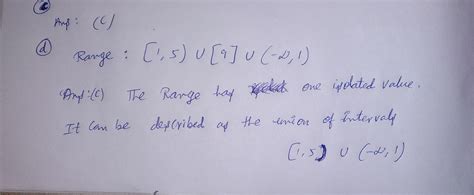 Ans: (c)
(d) Range : [1,5) ∪ [9] ∪ (-∞,1)
Ans:(c) The Range has one isolated value.
It can be described as the union of Intervals
[1,5) ∪ (-∞,1)